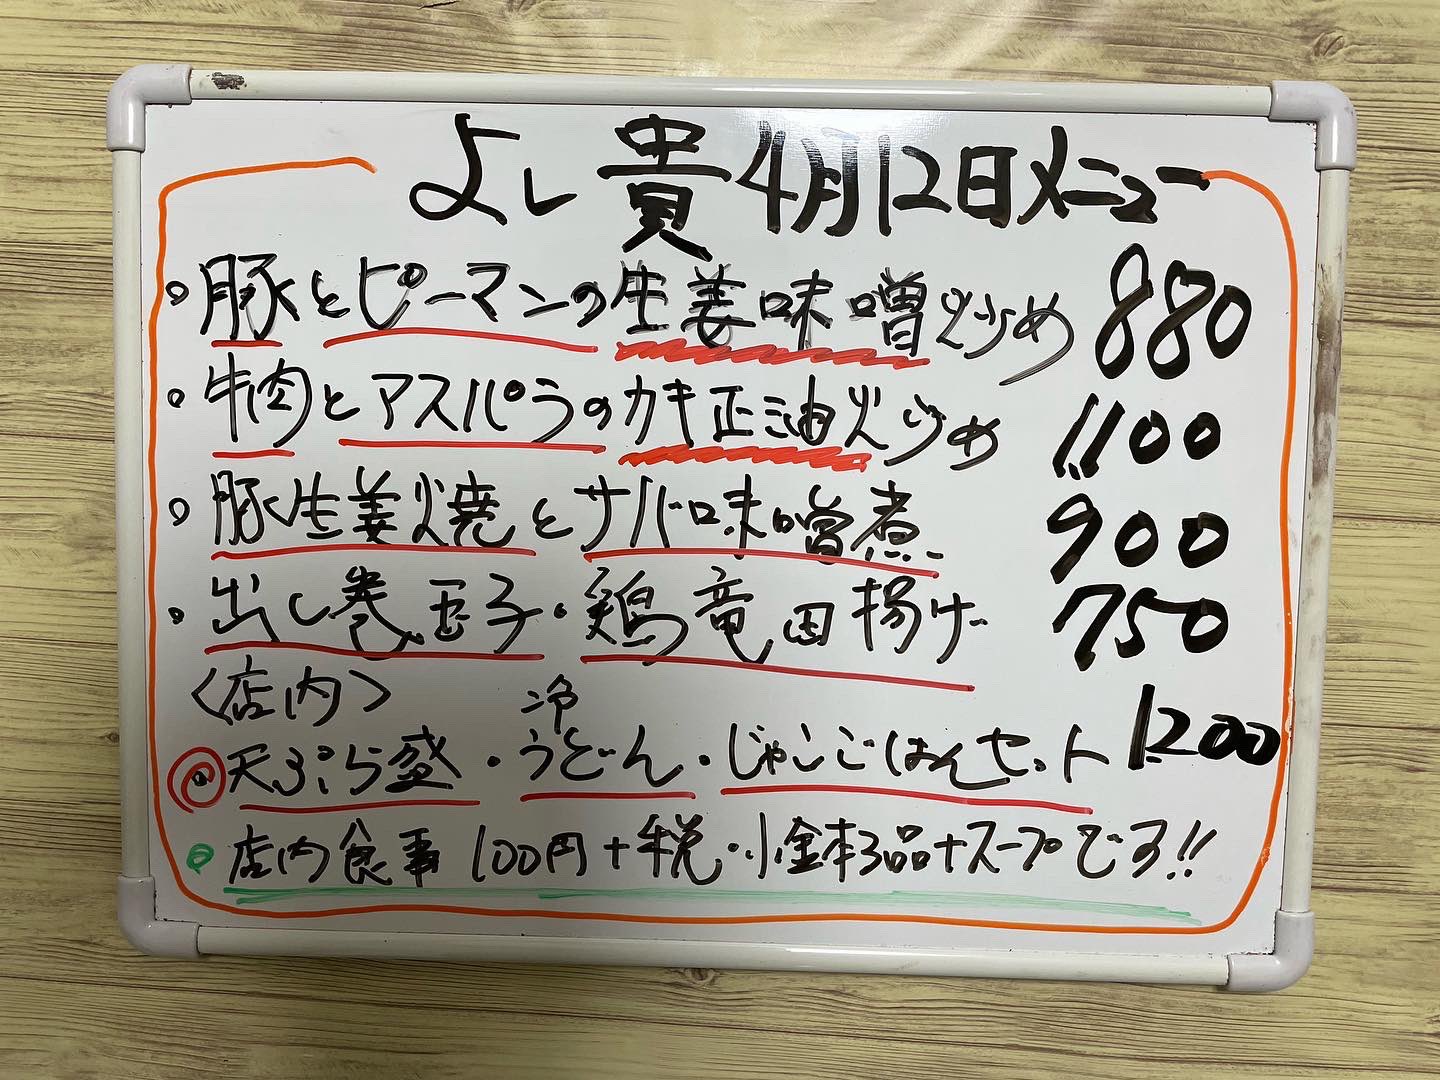 よし貴 4月12日メニュー
・豚とピーマンの生姜味噌炒め 880
・牛肉とアスパラのカキ正油炒め 1,100
・豚生姜焼とサバ味噌煮 900
・出し巻玉子・鶏竜田揚げ 750
〈店内〉 冷
天ぷら盛・うどん・じゃこごはんセット 1,200
店内食事 100円+税・小鉢3品+スープです!!